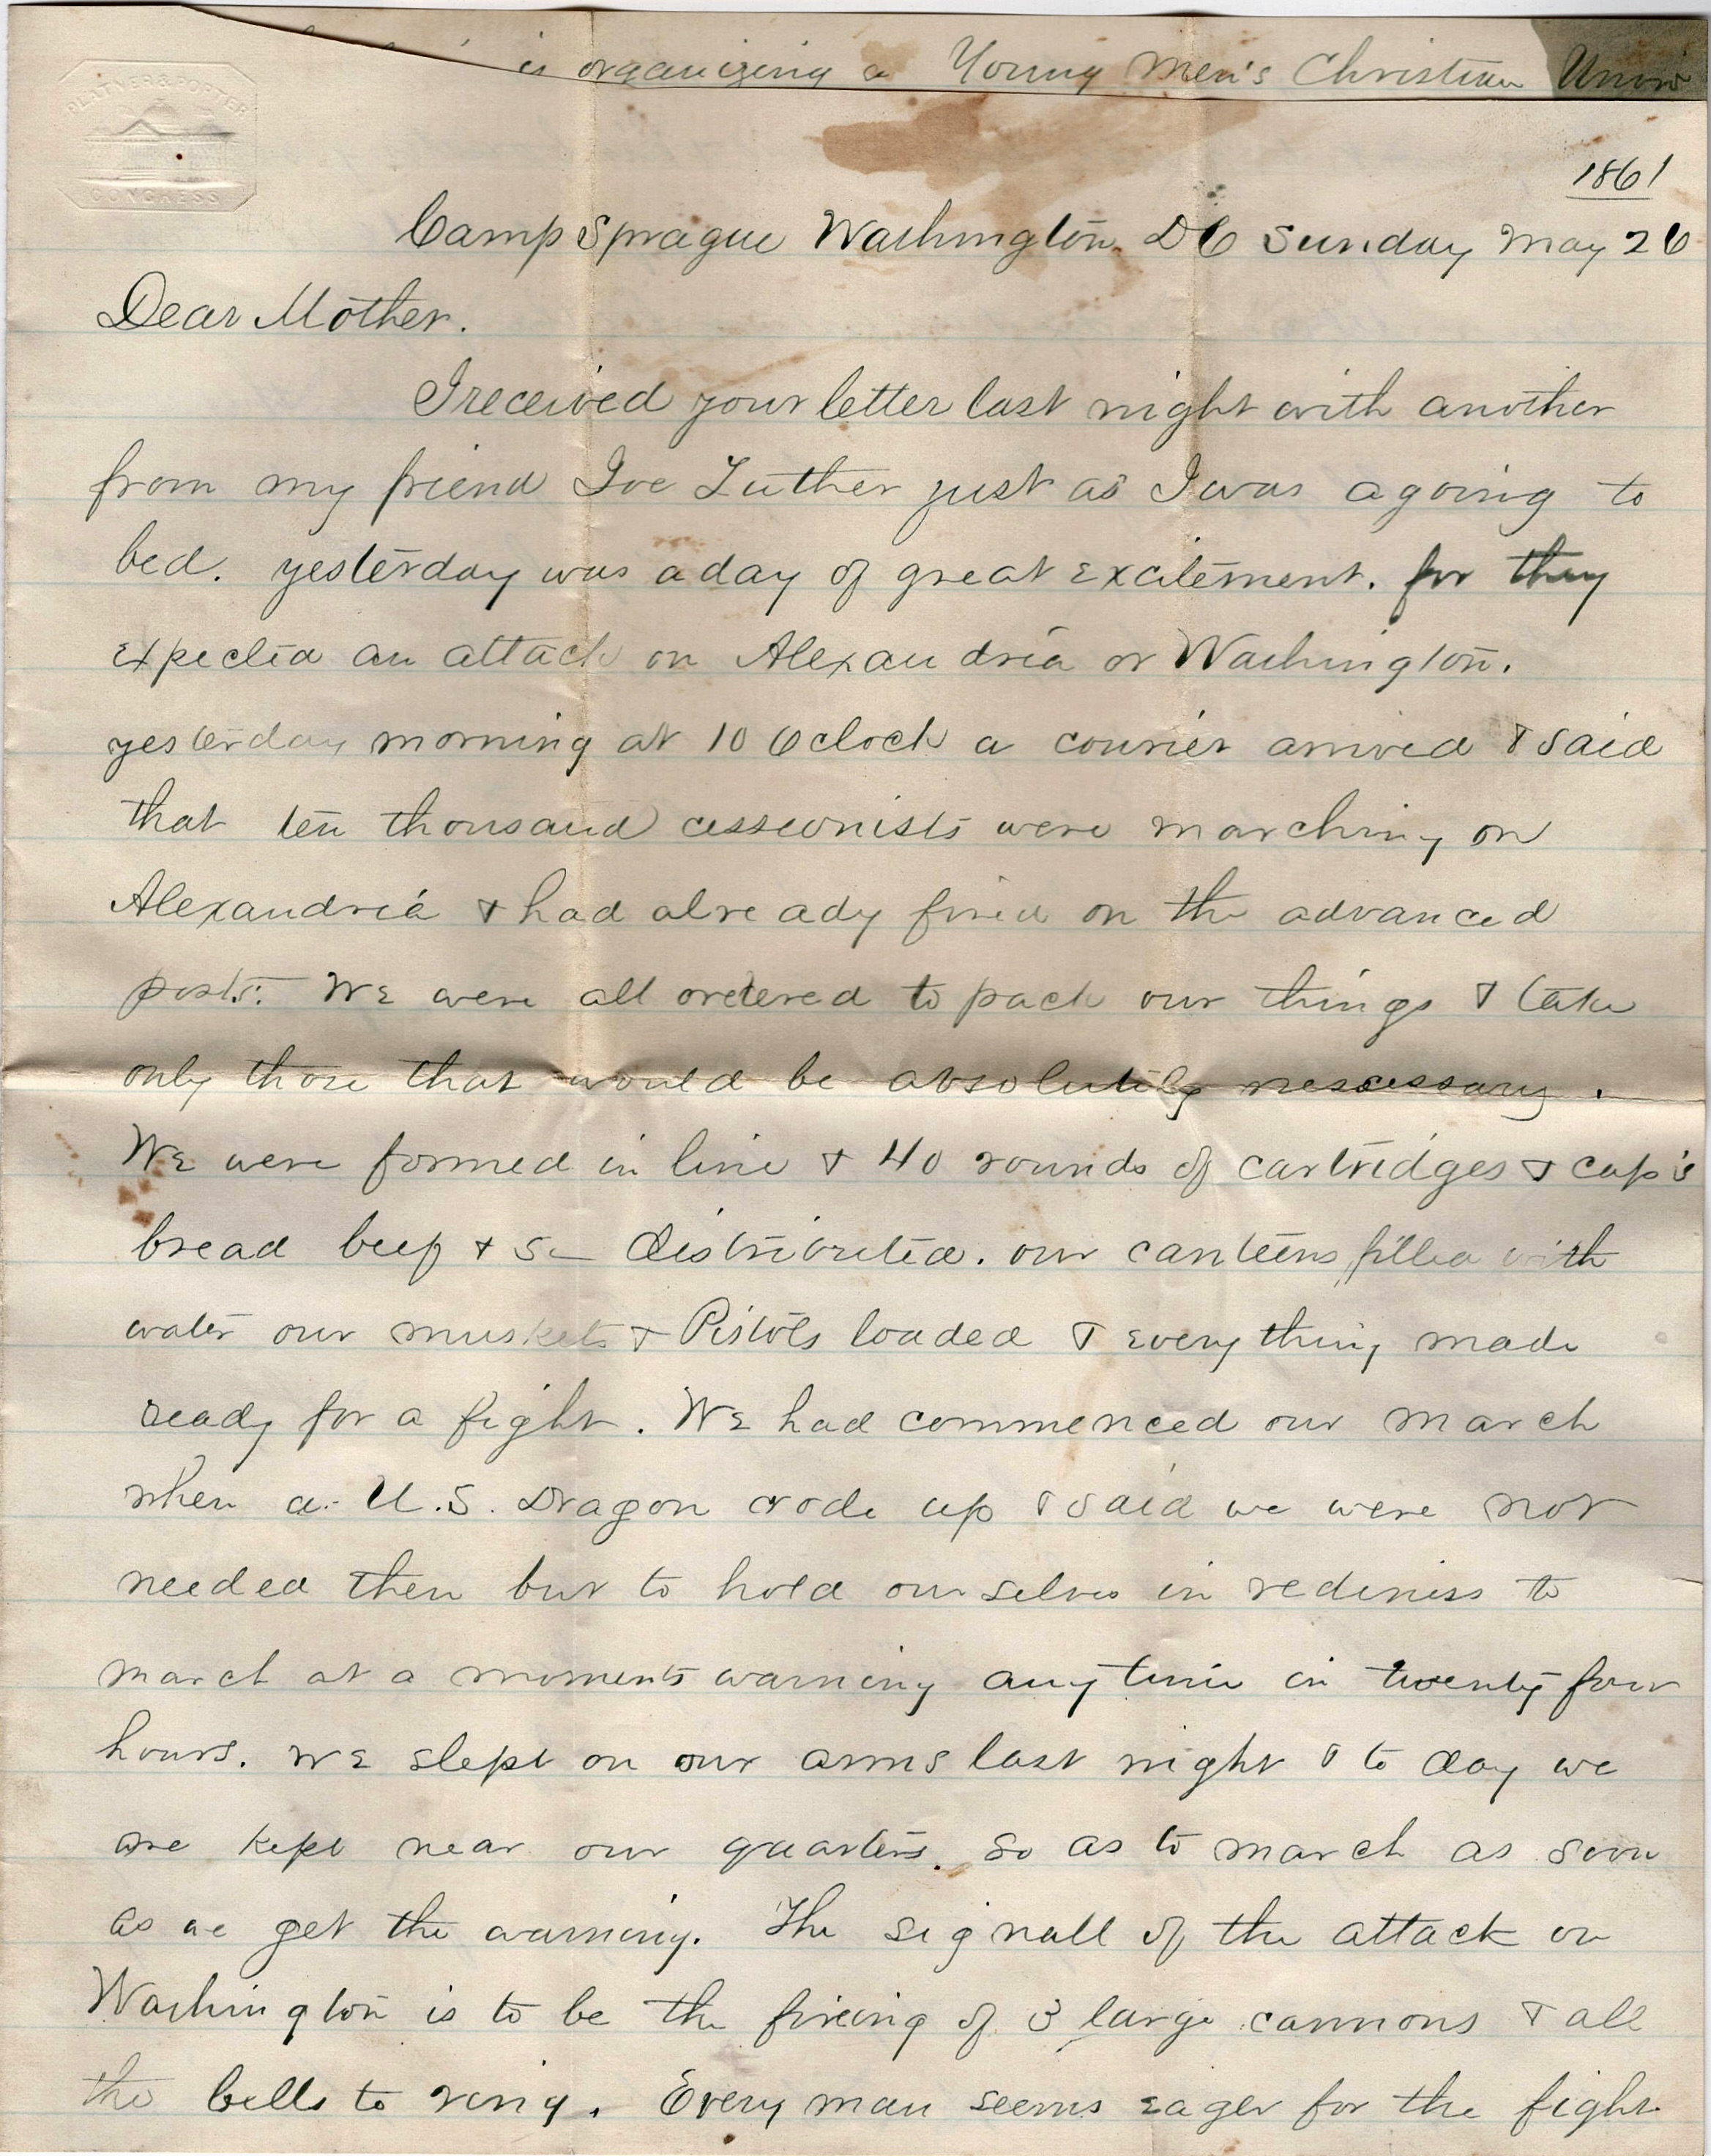 is organizing a Young Men's Christian Union
PLATNER & PORTER
CONGRESS
1861
Camp Sprague Washington DC Sunday May 26
Dear Mother.
I received your letter last night with another
from my friend Joe Luther just as I was a going to
bed. yesterday was a day of great excitement. for they
expected an attack on Alexandria or Washington.
yesterday morning at 10 Oclock a courier arrived & said
that ten thousand cesseonists were marching on
Alexandria & had already fired on the advanced
posts. We were all ordered to pack our things & take
only those that would be absolutily nescessary.
We were formed in line & 40 rounds of cartridges & cap's
bread beef & distributed. our canteens filled with
water our muskets & Pistols loaded & everything made
ready for a fight. We had commenced our march
when a U.S. Dragon rode up & said we were not
needed then but to hold ourselves in rediness to
march at a moments warning any time in twenty four
hours. We slept on our arms last night & to day we
are kept near our quarters. so as to march as soon
as we get the warning. The signall of the attack on
Washington is to be the fireing of 3 large cannons & all
the bells to ring. Every man seems eager for the fight